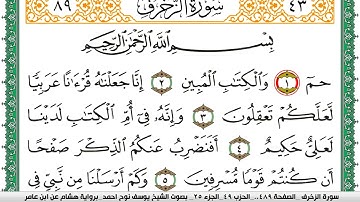 ٨٩ سورة الزخرف ٤٣
بِسْمِ اللَّهِ الرَّحْمَٰنِ الرَّحِيمِ
حمٓ ١ وَالْكِتَابِ الْمُبِينِ ٢ إِنَّا جَعَلْنَاهُ قُرْءَٰنًا عَرَبِيًّا
لَعَلَّكُمْ تَعْقِلُونَ ٣ وَإِنَّهُ فِي أُمِّ الْكِتَابِ لَدَيْنَا
لَعَلِيٌّ حَكِيمٌ ٤ أَفَنَضْرِبُ عَنكُمُ الذِّكْرَ صَفْحًا
أَن كُنتُمْ قَوْمًا مُّسْرِفِينَ ٥ وَكَمْ أَرْسَلْنَا مِن نَّبِيٍّ فِي
سورة الزخرف .الصفحة ٤٨٩..الحزب ٤٩ .الجزء ٢٥ .بصوت الشيخ يوسف نوح احمد .برواية هشام عن ابن عامر